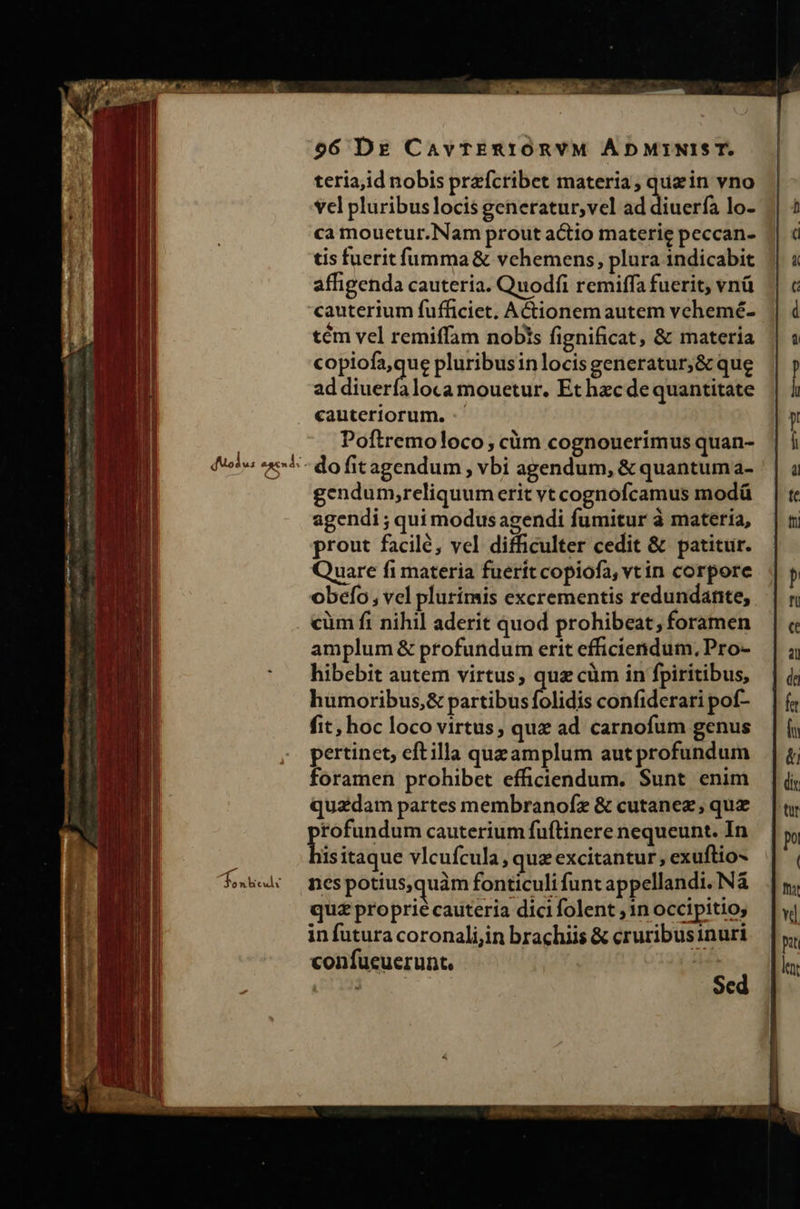 96 DE CAVTERIORVM ADMINIST.
teria,id nobis præſcribet materia, quæ in vno
vel pluribus locis generatur,vel ad diuerſa lo-
ca mouetur. Nam prout actio materię peccan-
tis fuerit ſumma & vehemens, plura indicabit
affigenda cauteria. Quodſi remiſſa fuerit, vnũ
cauterium ſufficiet. Actionem autem vehemẽ-
tém vel remiſſam nobis ſignificat, & materia
copioſa,quę pluribus in locis generatur,& quę
ad diuerſa loca mouetur. Et hæc de quantitate
cauteriorum.
Poſtremo loco, cùm cognouerimus quan-
Modus agendi
do ſit agendum, vbi agendum, & quantum a-
gendum,reliquum erit vt cognoſcamus modũ
agendi; qui modus agendi ſumitur à materia,
prout facilè, vel difficulter cedit & patitur.
Quare ſi materia fuerit copioſa, vt in corpore
obeſo, vel plurimis excrementis redundante,
cùm ſi nihil aderit quod prohibeat, foramen
amplum & profundum erit efficiendum. Pro-
hibebit autem virtus, quæ cùm in ſpiritibus,
humoribus,& partibus ſolidis conſiderari poſ-
ſit, hoc loco virtus, quæ ad carnoſum genus
pertinet, eſt illa quæ amplum aut profundum
foramen prohibet efficiendum. Sunt enim
quædam partes membranoſæ & cutaneæ, quæ
profundum cauterium ſuſtinere nequeunt. In
his itaque vlcuſcula, quæ excitantur, exuſtio-
Fonticuli
nes potius,quàm fonticuli ſunt appellandi. Nã
quæ propriè cauteria dici ſolent, in occipitio,
in ſutura coronali,in brachiis & cruribus inuri
conſueuerunt.
Sed